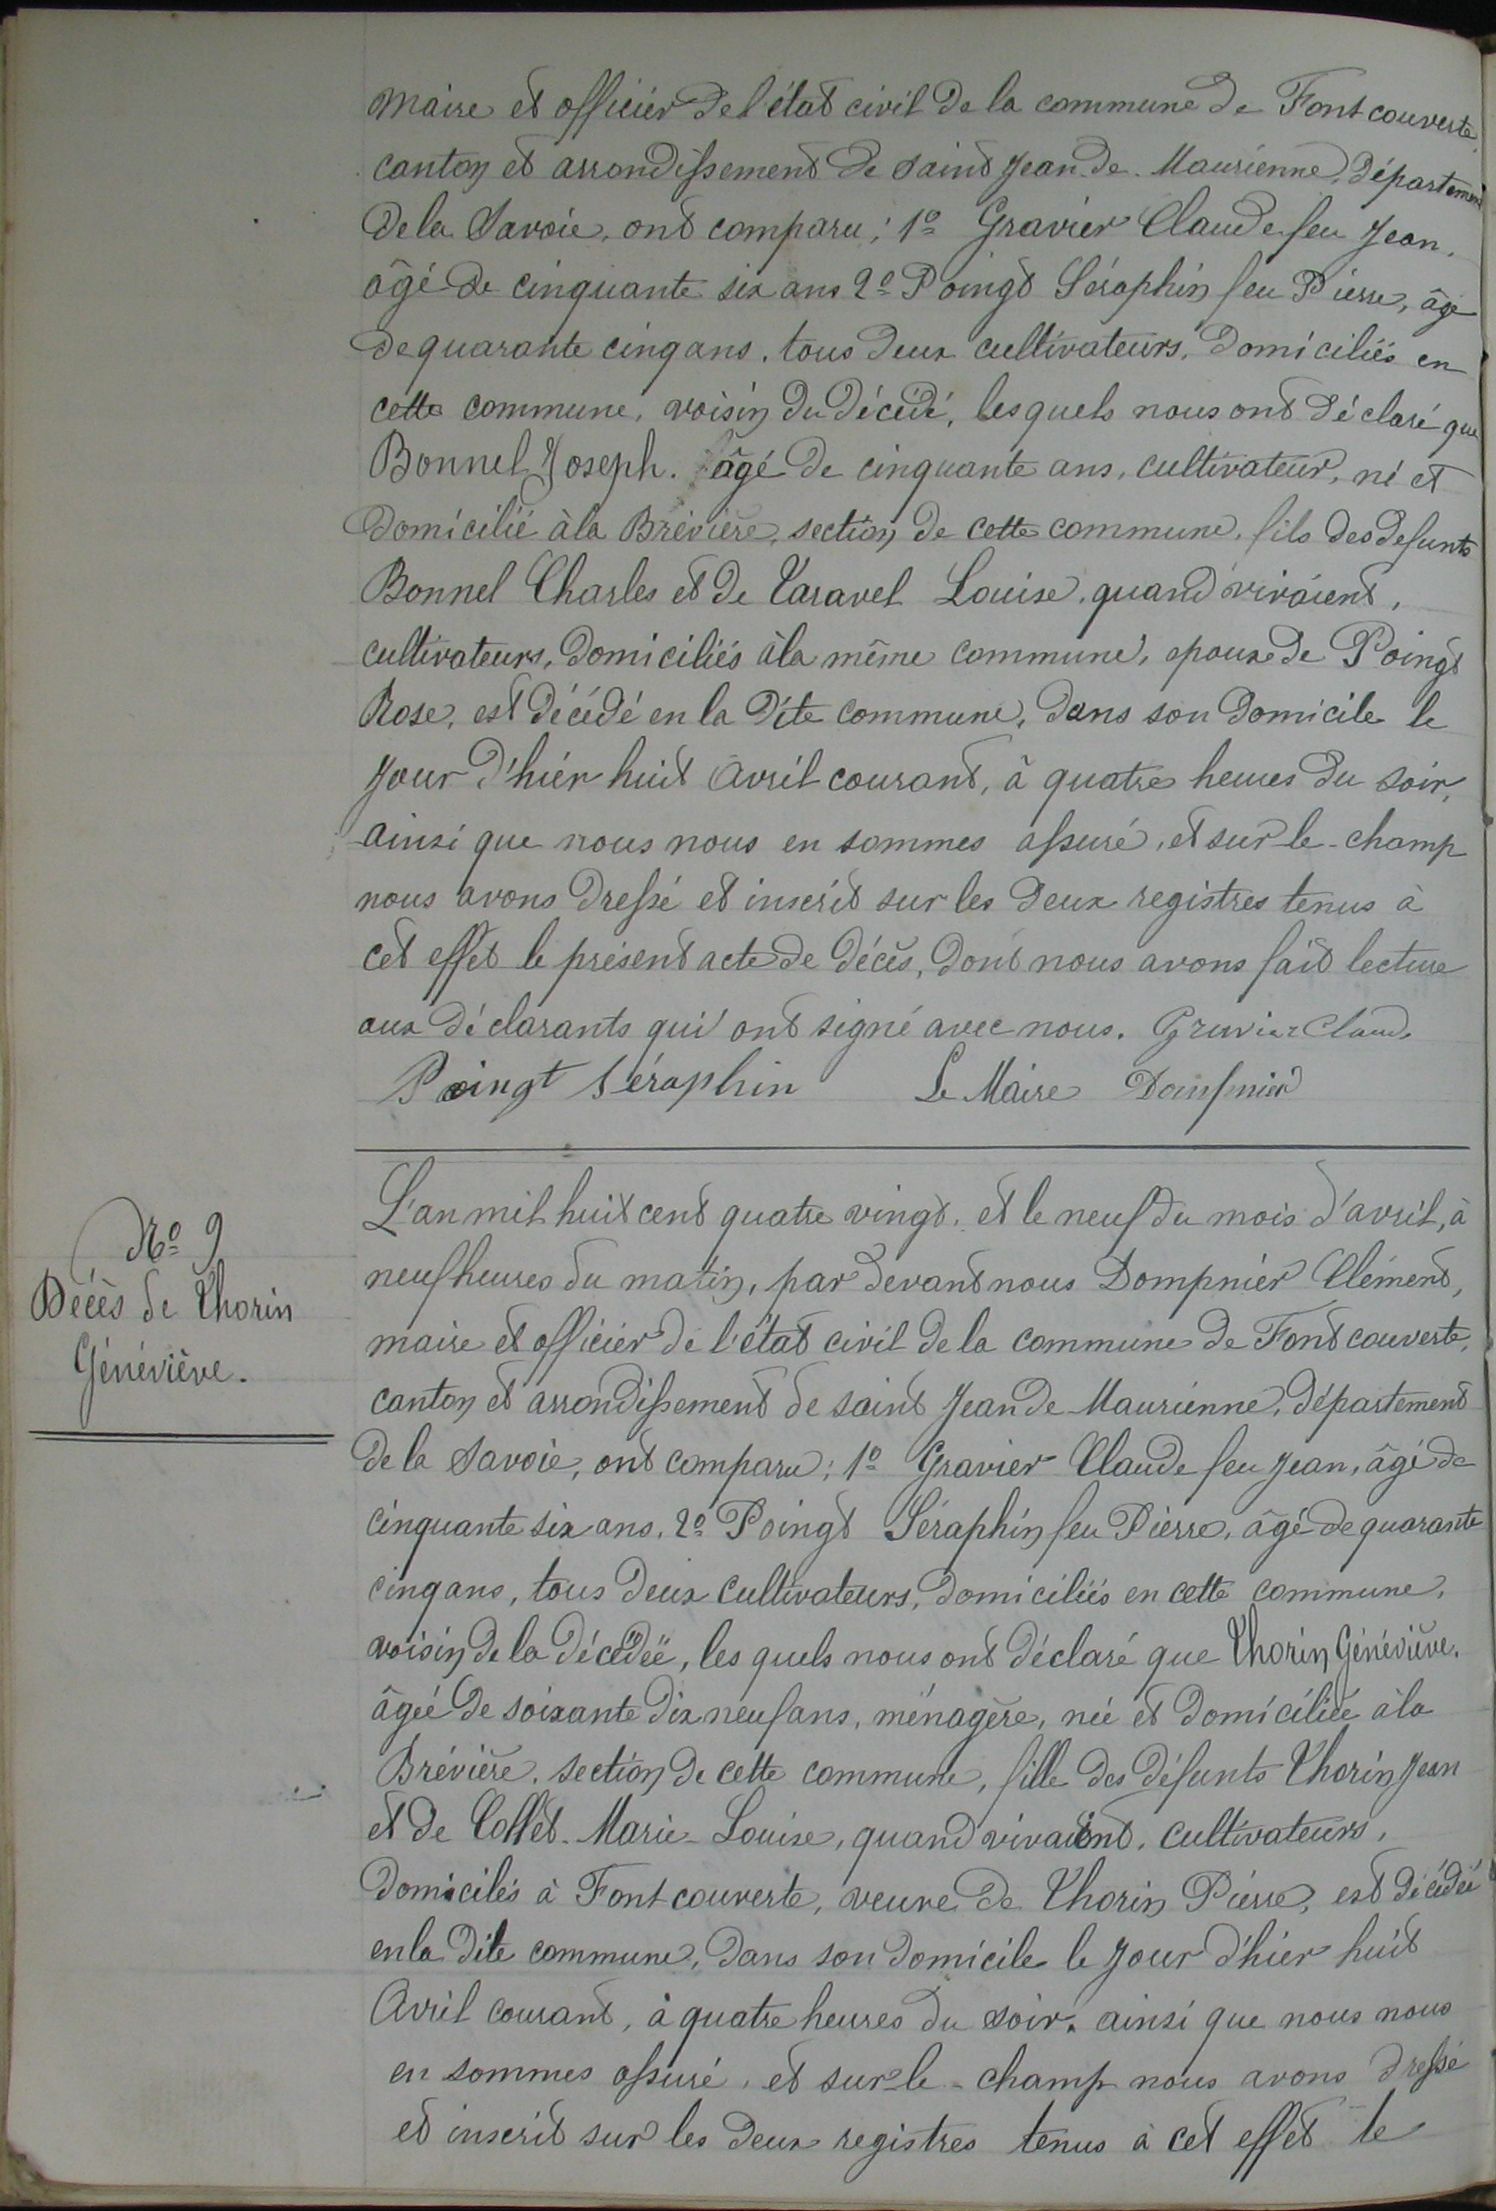 maire et officier de l'état civil de la commune de Fontcouverte,
canton et arrondissement de saint Jean de Maurienne, département
de la Savoie, ont comparu; 1º Gravier Claude feu Jean,
âgé de cinquante six ans 2º Poingt Séraphin feu Pierre, âgé
de quarante cinq ans, tous deux cultivateurs, domiciliés en
cette commune, voisin du décédé, lesquels nous ont déclaré que
Bonnel Joseph. âgé de cinquante ans, cultivateur, né et
domicilié à la Brévière, section de cette commune, fils des defunts
Bonnel Charles et de Taravel Louise, quand vivaient,
cultivateurs, domiciliés à la même commune, epoux de Poingt
Rose, est décédé en la dite commune, dans son domicile le
jour d'hier huit Avril courant, à quatre heures du soir,
ainsi que nous nous en sommes assuré, et sur-le-champ
nous avons dressé et inscrit sur les deux registres tenus à
cet effet le présent acte de décès, dont nous avons fait lecture
aux déclarants qui ont signé avec nous. Gravier Claude
Poingt Séraphin Le Maire Dompnier
Nº 9
Décès de Thorin
Généviève.
L'an mil huit cent quatre vingt, et le neuf du mois d'avril, à
neuf heures du matin, par devant nous Dompnier Clément,
maire et officier de l'état civil de la commune de Fontcouverte,
canton et arrondissement de saint Jean de Maurienne, département
de la Savoie, ont comparu; 1º Gravier Claude feu Jean, âgé de
cinquante six ans, 2º Poingt Séraphin feu Pierre, âgé de quarante
cinq ans, tous deux cultivateurs, domiciliés en cette commune,
voisin de la décédée, les quels nous ont déclaré que Thorin Généviève.
âgée de soixante dix neuf ans, ménagère, née et domiciliée à la
Brévière, section de cette commune, fille des défunts Thorin Jean
et de Collet Marie-Louise, quand vivaient, cultivateurs,
domicilés à Fontcouverte, veuve de Thorin Pierre, est décédée
en la dite commune, dans son domicile le jour d'hier huit
Avril courant, à quatre heures du soir, ainsi que nous nous
en sommes assuré, et sur-le-champ nous avons dressé
et inscrit sur les deux registres tenus à cet effet le